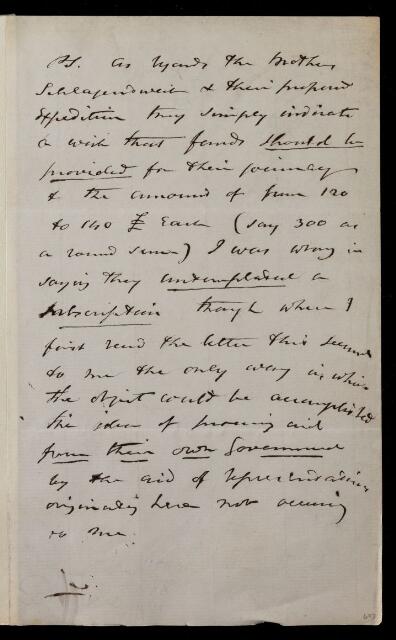 PS. As regards the Brothers
Schlagendweit & their proposed
Expedition they simply indicate
a wish that funds should be
provided for their journeys
to the amount of from 120
to 140 £ Each (say 300 as
a round sum) I was wrong in
saying they contemplated a
subscription though when I
first read the letter this seemed
to me the only way in which
the object could be accomplished
the idea of procuring aid
from their own Government
by the aid of representations
originating here not occurring
to me.